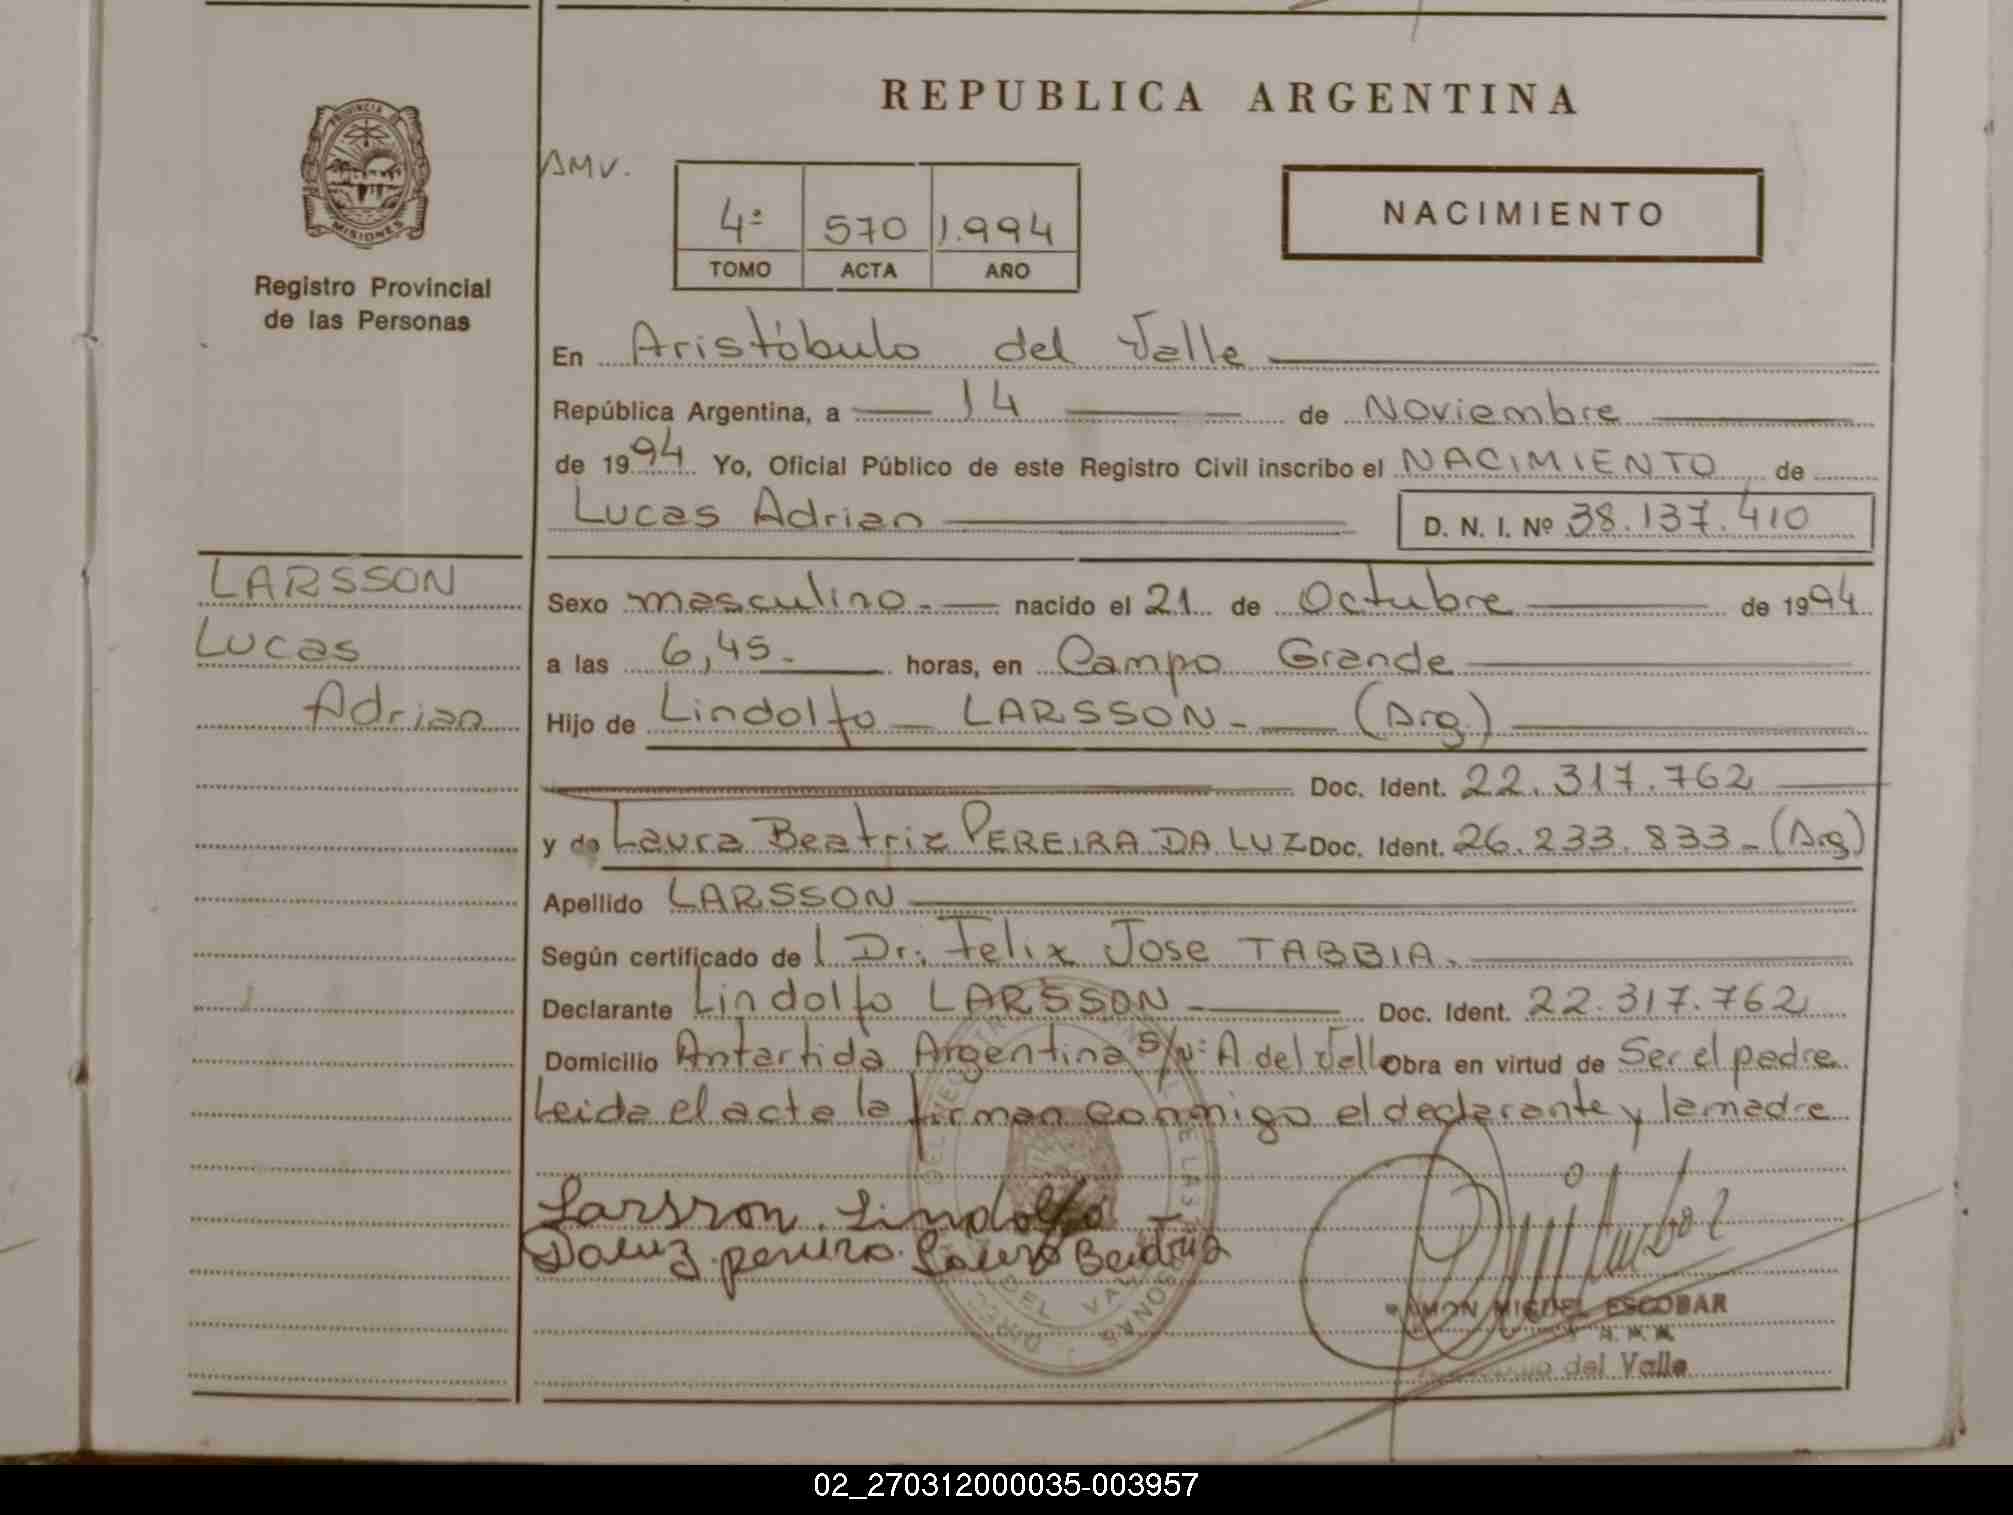 REPUBLICA ARGENTINA
PROVINCIA DE
MISIONES
AMV.
4º 570 1.994
TOMO ACTA AÑO
NACIMIENTO
Registro Provincial
de las Personas
En Aristóbulo del Valle
República Argentina, a 14 de Noviembre
de 1994 Yo, Oficial Público de este Registro Civil inscribo el NACIMIENTO de
Lucas Adrian D. N. I. Nº 38.137.410
LARSSON
Lucas
Adrian
Sexo masculino.- nacido el 21 de Octubre de 1994
a las 6,45.- horas, en Campo Grande
Hijo de Lindolfo LARSSON- (Arg.)
Doc. Ident. 22.317.762
y de Laura Beatriz PEREIRA DA LUZ Doc. Ident. 26.233.833-(Arg)
Apellido LARSSON
Según certificado de l Dr. Felix Jose TABBIA.
Declarante Lindolfo LARSSON- Doc. Ident. 22.317.762
Domicilio Antartida Argentina s/nº A del Valle Obra en virtud de Ser el padre
Leida el acta la firman conmigo el declarante y la madre
Larsson. Lindolfo
Daluz. pereira. Laura Beatriz
RAMON MIGUEL ESCOBAR
del Valle
02_270312000035-003957